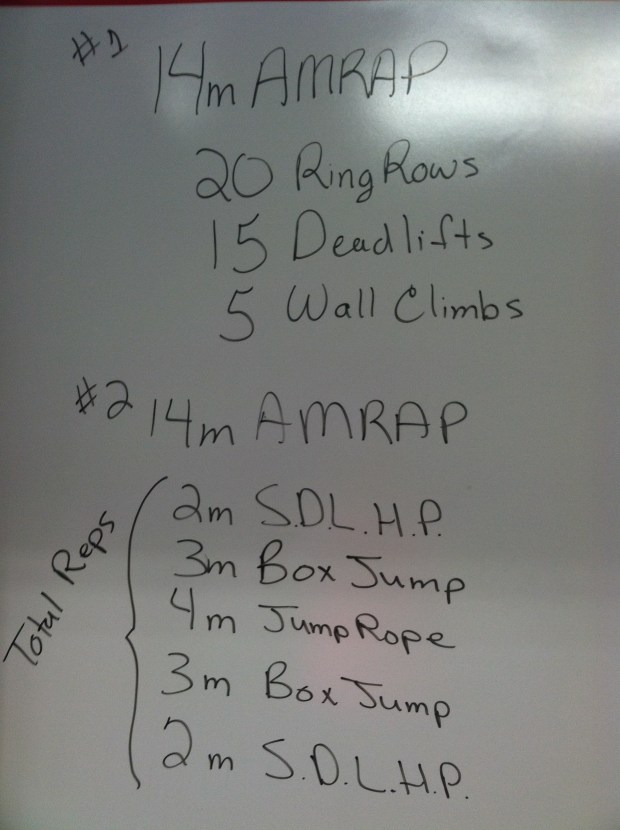 #1 14m AMRAP
20 Ring Rows
15 Deadlifts
5 Wall Climbs
#2 14m AMRAP
Total Reps
2m S.D.L.H.P.
3m Box Jump
4m Jump Rope
3m Box Jump
2m S.D.L.H.P.